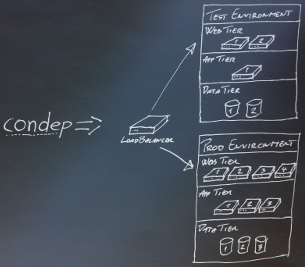 condep =>
LOADBALANCER
TEST ENVIRONMENT
WEB TIER
1 2
APP TIER
1
DATA TIER
1 2
PROD ENVIRONMENT
WEB TIER
1 2 3 4
APP TIER
1 2 3
DATA TIER
1 2 3